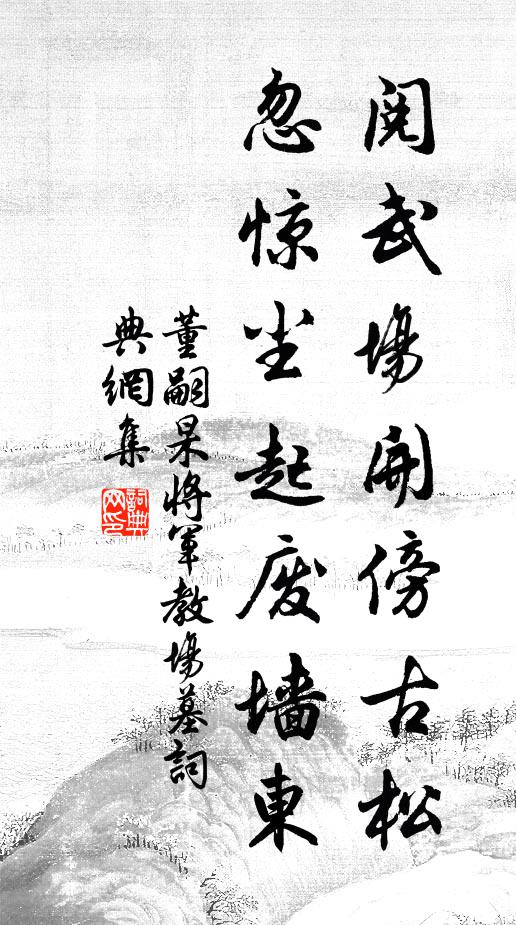 阅武場開傍古松
忽惊尘起废墙東
董嗣杲將軍教場墓詞
典網集
詞典網印